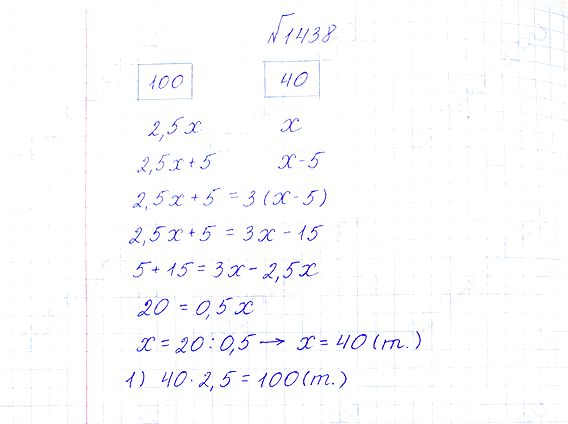 №1438
100 40
2,5x x
2,5x+5 x-5
2,5x+5 = 3(x-5)
2,5x+5 = 3x-15
5+15 = 3x-2,5x
20 = 0,5x
x = 20:0,5 → x = 40 (т.)
1) 40·2,5 = 100 (т.)